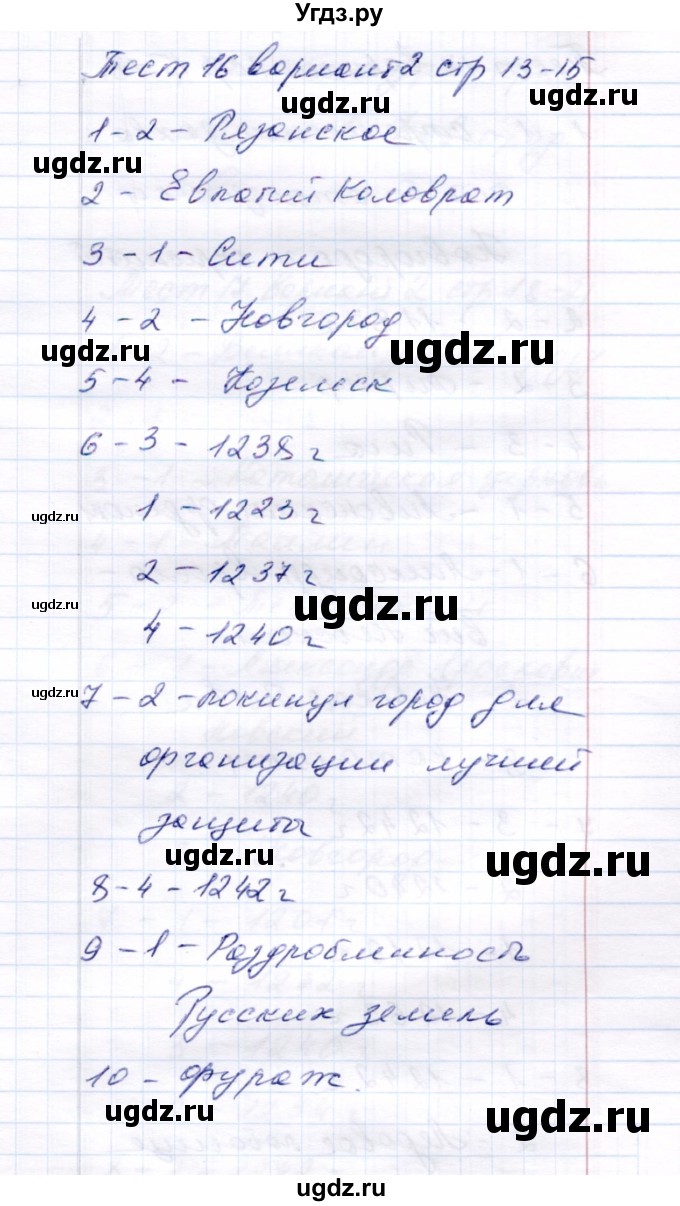 Угдз.ру
Тест 16 вариант 2 стр 13-15
ugdz.ru
1-2 - Рязанское
ugdz.ru
2 - Евпатий Коловрат
3 - 1 - Сити
4 - 2 - Новгород
ugdz.ru ugdz.ru
5-4 - Козельск
6 - 3 - 1238 г
1 - 1223 г
ugdz.ru
2 - 1237 г
ugdz.ru ugdz.ru
4 - 1240 г
ugdz.ru
7 - 2 - покинул город для
организации лучшей
защиты
ugdz.ru ugdz.ru
8-4 - 1242 г
9 - 1 - Раздробленность
Русских земель
10 - фураж.
ugdz.ru ugdz.ru
ugdz.ru